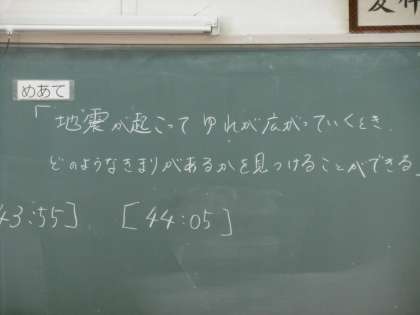 めあて
「地震が起こって ゆれが広がっていくとき、
どのようなきまりがあるかを見つけることができる」
43:55] [44:05]